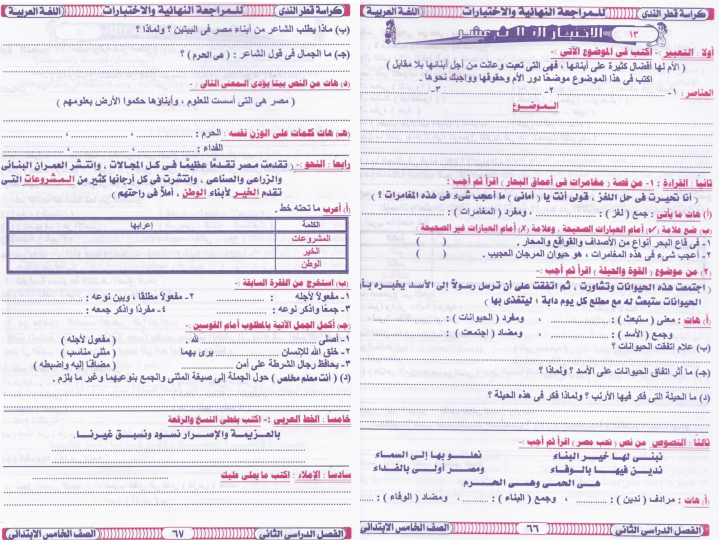 كراسة شرح الندى للمراجعة النهائية والاختبارات اللغة العربية
١٣ الاختبار الثالث عشر
أولا : التعبير :- اكتب فى الموضوع الآتى :-
( الأم لها أفضال كثيرة على أبنائها ، فهى التى تعبت وعانت من أجل أبنائها بلا مقابل )
اكتب فى هذا الموضوع موضحًا دور الأم وحقوقها وواجبك نحوها .
العناصر : ١- ........ ٢- ........ ٣- ........
الموضوع
ثانيًا : القراءة : ١- من قصة ( مغامرات فى أعماق البحار ) اقرأ ثم أجب :
( أنا تحيرت فى حل اللغز ، قولى أنت يا ( أمانى ) ما أعجب شىء فى هذه المغامرات ؟ )
(أ) هات ما يأتى : جمع ( لغز ) : ........ ، ومفرد ( المغامرات ) : ........
(ب) ضع علامة (✓) أمام العبارات الصحيحة ، وعلامة (✗) أمام العبارات غير الصحيحة :
١- فى قاع البحر أنواع من الأصداف والقواقع والمحار . ( )
٢- أعجب شىء فى هذه المغامرات ، هو حيوان المرجان العجيب . ( )
(٢) من موضوع ( القوة والحيلة ) اقرأ ثم أجب :
( اجتمعت هذه الحيوانات وتشاورت ، ثم اتفقت على أن ترسل رسولاً إلى الأسد يخبره بأن
الحيوانات ستبعث له مع مطلع كل يوم دابة ؛ ليتغذى بها )
(أ) هات : معنى ( ستبعث ) : ........ ، ومفرد ( الحيوانات ) : ........
وجمع ( الأسد ) : ........ ، ومضاد ( اجتمعت ) : ........
(ب) علام اتفقت الحيوانات ؟
(جـ) ما أثر اتفاق الحيوانات على الأسد ؟ ولماذا ؟
(د) ما الحيلة التى فكر فيها الأرنب ؟ ولماذا فكر فى هذه الحيلة ؟
ثالثًا : النصوص من نص ( نحب مصر ) اقرأ ثم أجب :-
نبنى لها خير البناء نعلو بها إلى السماء
ندين فيها بالوفاء ومصر أولى بالفداء
هى الحمى وهى الحرم
(أ) هات : مرادف ( ندين ) : ........ ، وجمع ( البناء ) : ........ ، ومضاد ( الوفاء ) : ........
الفصل الدراسى الثانى ٦٦ الصف الخامس الابتدائى
كراسة شرح الندى للمراجعة النهائية والاختبارات اللغة العربية
(ب) ماذا يطلب الشاعر من أبناء مصر فى البيتين ؟ ولماذا ؟
(جـ) ما الجمال فى قول الشاعر : ( هى الحرم ) ؟
(د) هات من النص بيتا يؤدى المعنى التالى :-
( مصر هى التى أسست للعلوم ، وأبناؤها حكموا الأرض بعلومهم )
(هـ) هات كلمات على الوزن نفسه : الحرم : ........ ، ........ ، ........
الفداء : ........ ، ........ ، ........
رابعًا : النحو :- ( تقدمت مصر تقدمًا عظيمًا فى كل المجالات ، وانتشر العمران البنائى
والزراعى والصناعى ، وانتشرت فى كل أرجائها كثير من المشروعات التى
تقدم الخير لأبناء الوطن ، أملاً فى راحتهم )
(أ) أعرب ما تحته خط .
الكلمة إعرابها
المشروعات
الخير
الوطن
(ب) استخرج من الفقرة السابقة :-
١- مفعولاً لأجله : ........ ٢- مفعولاً مطلقًا ، وبين نوعه : ........
٣- جمعًا واذكر نوعه : ........ ٤- مفردًا واذكر جمعه : ........
(جـ) أكمل الجمل الآتية بالمطلوب أمام القوسين :-
١- أصلى ........ لله . ( مفعول لأجله )
٢- خلق الله للإنسان ........ يرى بهما ( مثنى مناسب )
٣- يحافظ رجال الشرطة على أمن ........ ( مضافًا إليه واضبطه )
(د) ( أنت معلم مخلص ) حول الجملة إلى صيغة المثنى والجمع بنوعيهما وغير ما يلزم .
خامسًا : الخط العربى :- اكتب بخطى النسخ والرقعة
بالعزيمة والإصرار نسود ونسبق غيرنا .
سادسًا : الإملاء : اكتب ما يملى عليك
الفصل الدراسى الثانى ٦٧ الصف الخامس الابتدائى